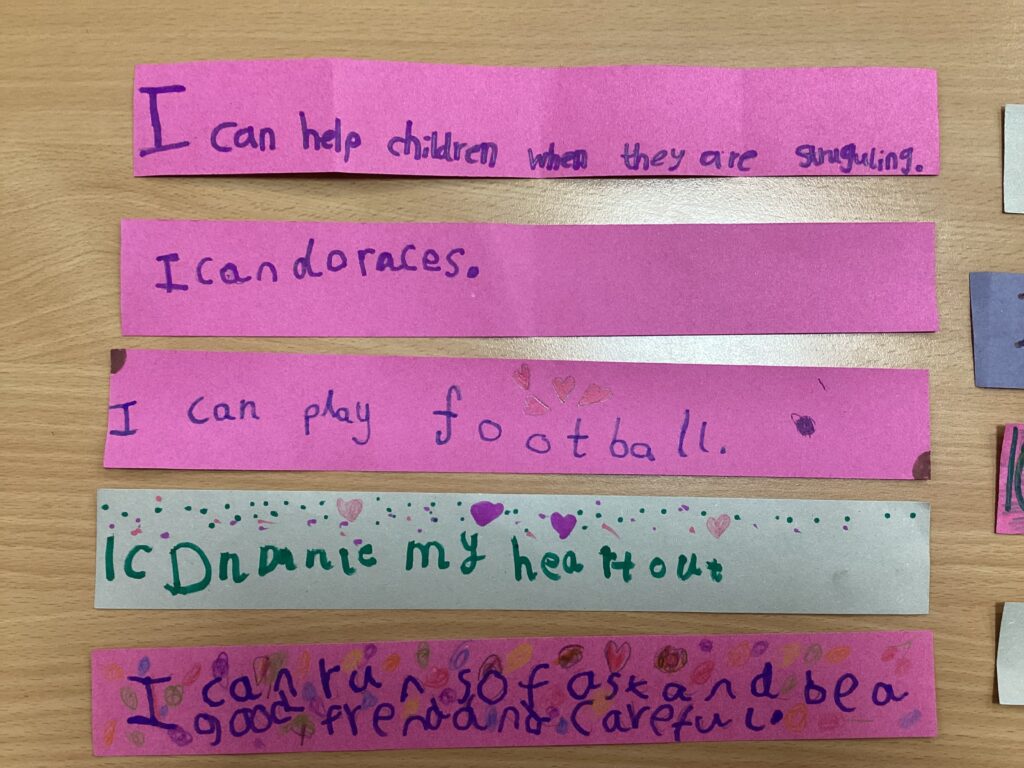 I can help children when they are struguling.
I can do races.
I can play football.
I can my heart out
I can run so fast and be a
good frend and careful.